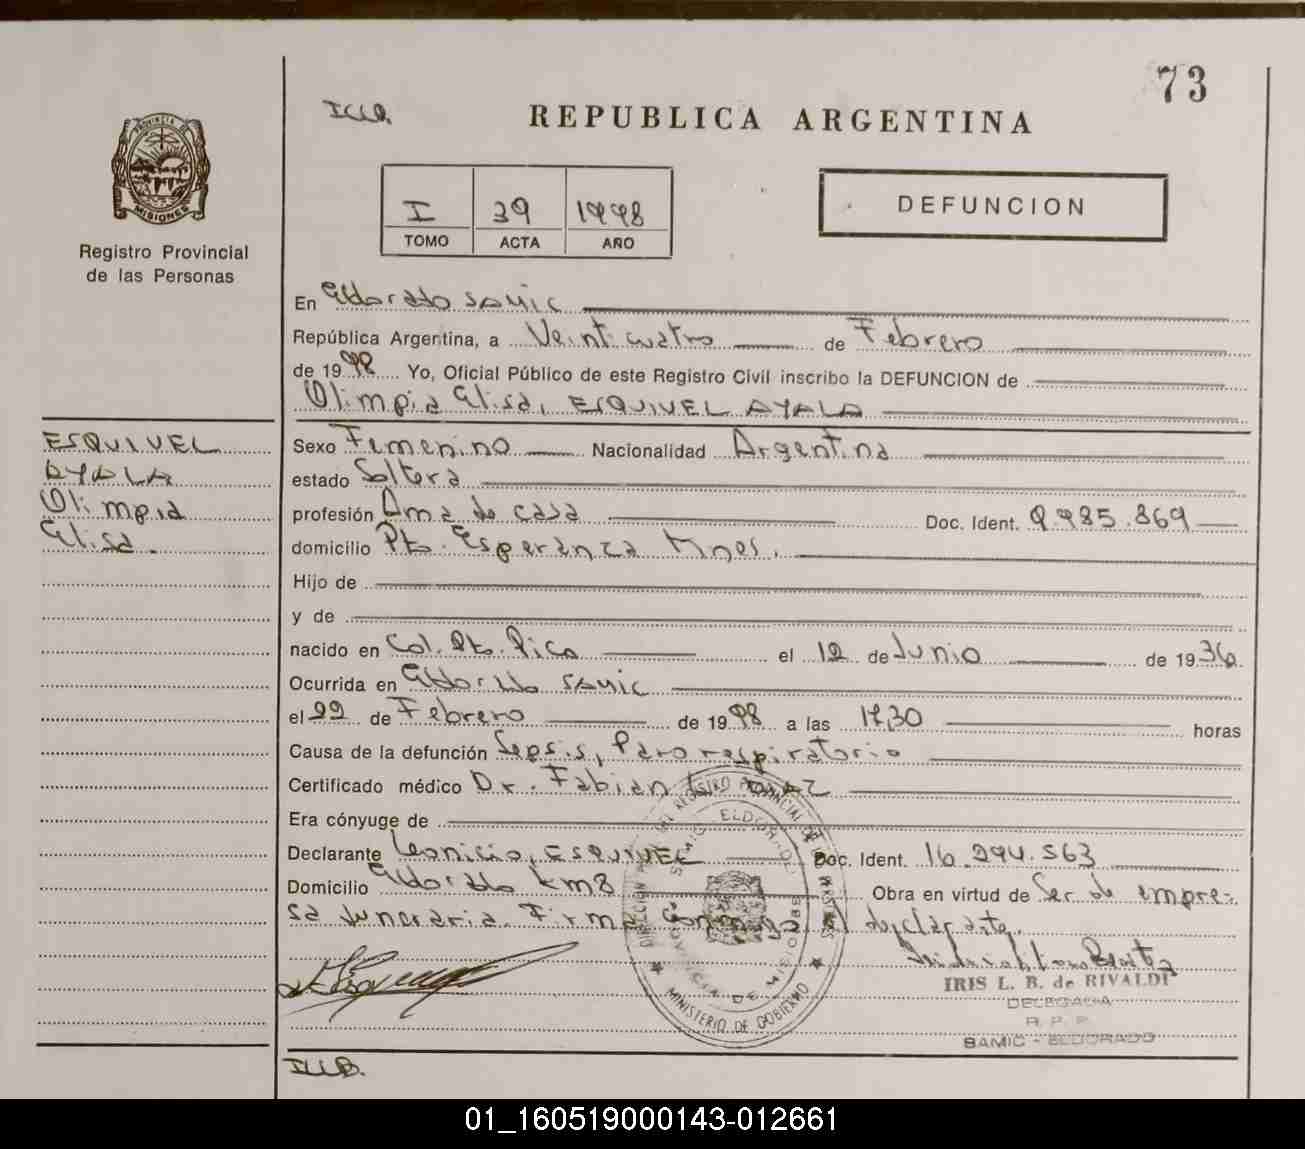 73
REPUBLICA ARGENTINA
PROVINCIA DE
MISIONES
Registro Provincial
de las Personas
I 39 1998
TOMO ACTA AÑO
DEFUNCION
En Eldorado SAMIC
República Argentina, a Veinticuatro de Febrero
de 1998 Yo, Oficial Público de este Registro Civil inscribo la DEFUNCION de
Olimpia Elisa, ESQUIVEL AYALA
ESQUIVEL
AYALA
Olimpia
Elisa.
Sexo Femenino Nacionalidad Argentina
estado Soltera
profesión Ama de casa Doc. Ident. 9.985.869
domicilio Pto. Esperanza Mnes.
Hijo de
y de
nacido en Col. Pto. Pico el 12 de Junio de 1936
Ocurrida en Eldorado SAMIC
el 22 de Febrero de 1998 a las 17,30 horas
Causa de la defunción Sepsis, Paro respiratorio
Certificado médico Dr. Fabian
Era cónyuge de
Declarante Leonicio, ESQUIVEL Doc. Ident. 16.294.563
Domicilio Eldorado km 8 Obra en virtud de Ser de empre=
sa funeraria. Firma conmigo el declarante.
IRIS L. B. de RIVALDI
DELEGADA
R. P. P.
SAMIC - ELDORADO
MINISTERIO DE GOBIERNO
PROVINCIA DE MISIONES
01_160519000143-012661